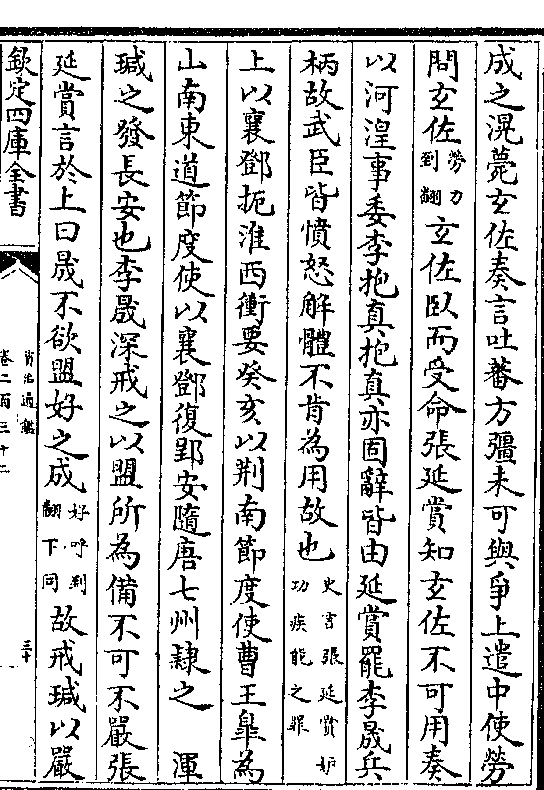 成之滉薨玄佐奏言吐蕃方彊未可與爭上遣中使勞
問玄佐勞力到翻玄佐臥而受命張延賞知玄佐不可用奏
以河湟事委李抱真抱真亦固辭皆由延賞罷李晟兵
柄故武臣皆憤怒解體不肯為用故也史言張延賞妒功疾能之罪
上以襄鄧扼淮西衝要癸亥以荆南節度使曹王臯為
山南東道節度使以襄鄧復郢安隨唐七州隸之　渾
瑊之發長安也李晟深戒之以盟所為備不可不嚴張
延賞言於上曰晟不欲盟好之成好呼到翻下同故戒瑊以嚴
欽定四庫全書
資治通鑑
卷二百三十二
三十